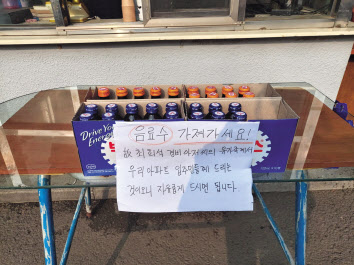 Drive You
Energe
음료수 가져가세요!
故 최희석 경비아저씨의 유가족께서
우리아파트 입주민들께 드리는
것이오니 자유롭게 드시면 됩니다.